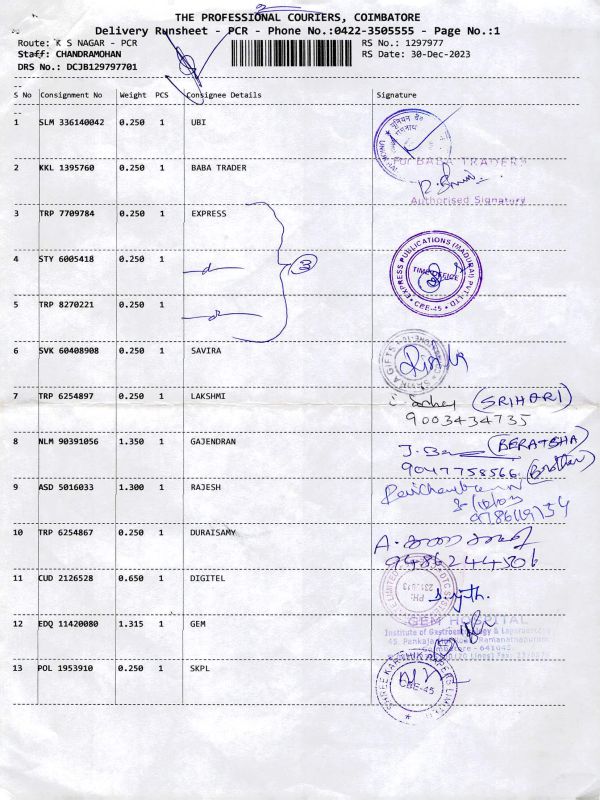 THE PROFESSIONAL COURIERS, COIMBATORE
Delivery Runsheet - PCR - Phone No.:0422-3505555 - Page No.:1
Route: K S NAGAR - PCR
RS No.: 1297977
Staff: CHANDRAMOHAN
RS Date: 30-Dec-2023
DRS No.: DCJB129797701
S No Consignment No Weight PCS Consignee Details Signature
1 SLM 336140042 0.250 1 UBI
2 KKL 1395760 0.250 1 BABA TRADER
For BABA TRADERS
Authorised Signatory
3 TRP 7709784 0.250 1 EXPRESS
4 STY 6005418 0.250 1
3
EXPRESS PUBLICATIONS (MADURAI) PVT LTD
TIME OFFICE
CBE-45
5 TRP 8270221 0.250 1
6 SVK 60408908 0.250 1 SAVIRA
7 TRP 6254897 0.250 1 LAKSHMI
(SRIHARI)
9003434735
8 NLM 90391056 1.350 1 GAJENDRAN
9047758566 (Brother)
9 ASD 5016033 1.300 1 RAJESH
10 TRP 6254867 0.250 1 DURAISAMY
9486244506
11 CUD 2126528 0.650 1 DIGITEL
12 EDQ 11420080 1.315 1 GEM
GEM HOSPITAL
Institute of Gastroenterology &
13 POL 1953910 0.250 1 SKPL
CBE-45